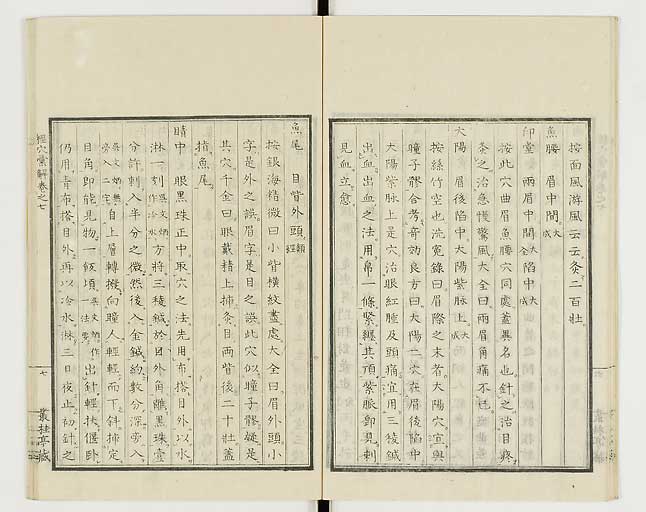 按面風游風云云灸二百壯
魚腰　眉中間大成
印堂　兩眉中間大全陷中大成
按此穴曲眉魚腰穴同處蓋異名也針之治目疼
灸之治急慢驚風大全曰兩眉角痛不已
太陽　眉後陷中太陽紫脉上大成
按絲竹空也洗寃錄曰眉際之末者太陽穴宜與
瞳子髎合考奇効良方曰太陽二穴在眉後陷中
太陽紫脉上是穴治眼紅腫及頭痛宜用三稜鍼
出血出血之法用帛一條緊纏其項紫脈卽見刺
見血立愈
魚尾　目眥外頭類經
按銀海精微曰小眥橫紋盡處大全曰眉外頭小
字是外之誤眉字是目之誤此穴似瞳子髎疑是
其穴千金曰眼戴精上揷灸目兩眥後二十壯蓋
指魚尾
睛中　眼黑珠正中取穴之法先用布搭目外以水
淋一刻吳文炳作冷水方將三稜鍼於目外角離黑珠壹
分許刺入半分之微然後入金鍼約數分深旁入
吳文炳無旁入二字自上層轉撥向瞳人輕輕而下斜揷定
目角卽能見物一飯頃吳文炳作一法出針輕扶偃臥
仍用青布搭目外再以冷水淋三日夜止初針之
經穴彙解卷之七
七
叢桂亭藏